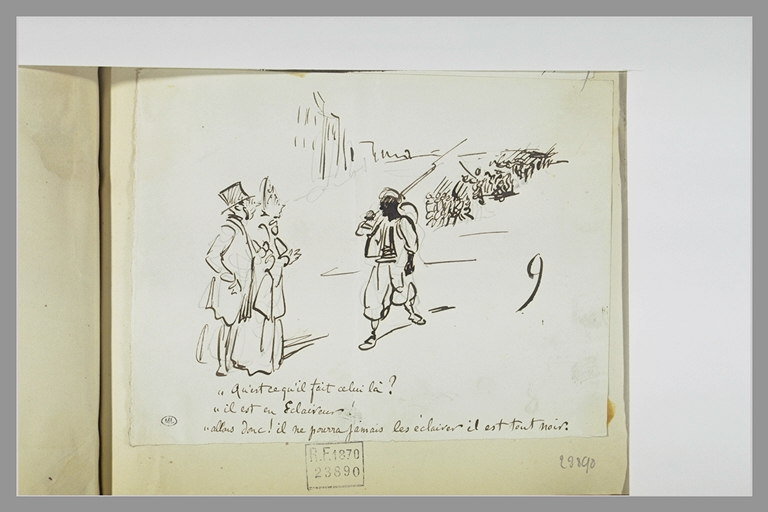 9
„ Qu'est ce qu'il fait celui là ?
„ il est en Eclaireur !
„ allons donc ! il ne pourra jamais les éclairer il est tout noir.
ML
R.F. 1870
23690
29890